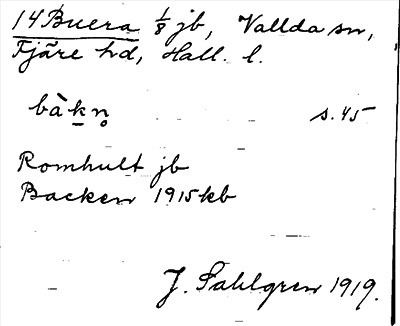 14 Buera 1/8 jb, Vallda sn,
Fjäre hd, Hall. l.
bàkn̥ s. 45
Romhult jb
Backen 1915 kb
J. Sahlgren 1919.